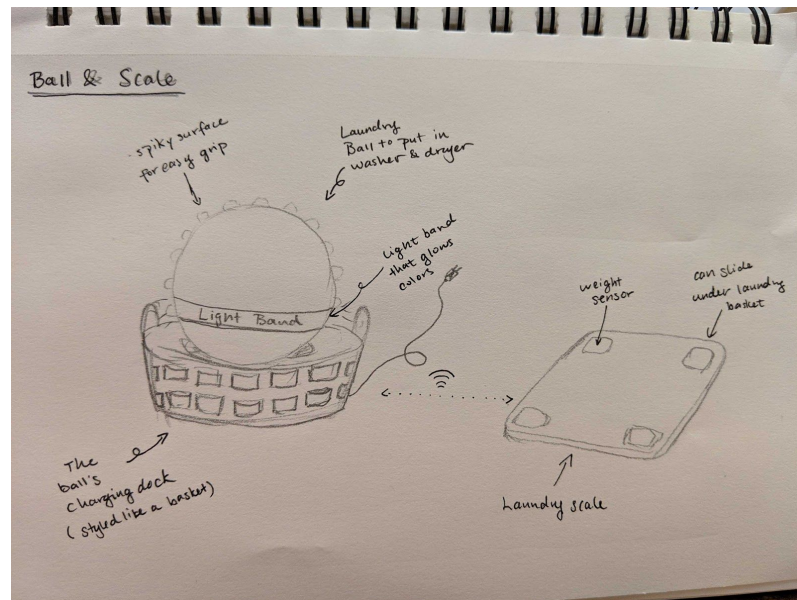 Ball & Scale
spiky surface
for easy grip
Laundry
Ball to put in
washer & dryer
Light band
that glows
colors
Light Band
weight
sensor
can slide
under laundry
basket
The
ball's
charging dock
(styled like a basket)
Laundry scale